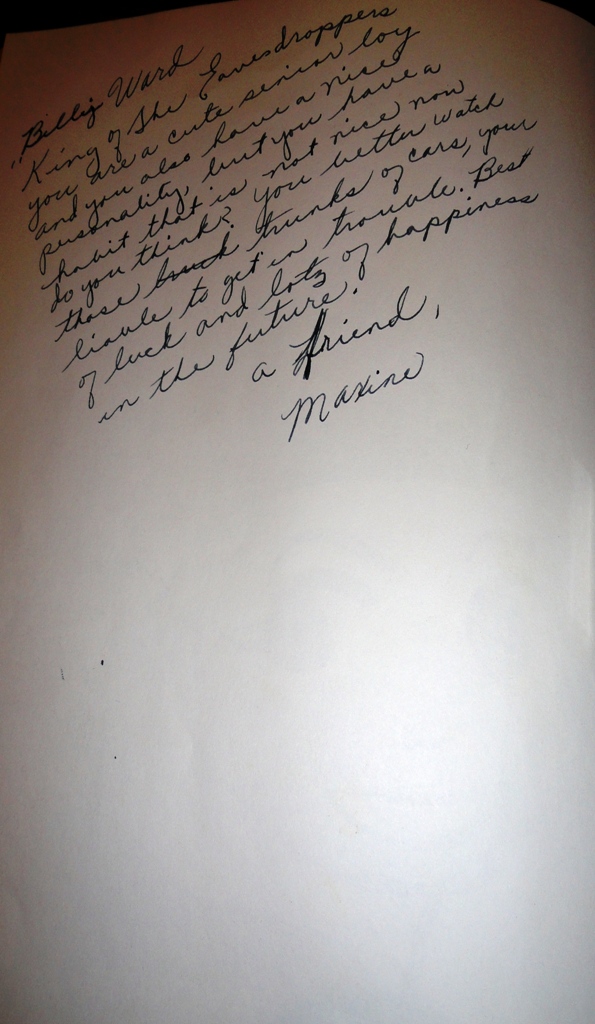 Billy Ward
"King of The Eavesdroppers
you are a cute senior boy
and you also have a nice
personality, but you have a
habit that is not nice now
do you think? You better watch
those trunks of cars, your
liable to get in trouble. Best
of luck and lots of happiness
in the future.
a friend,
Maxine